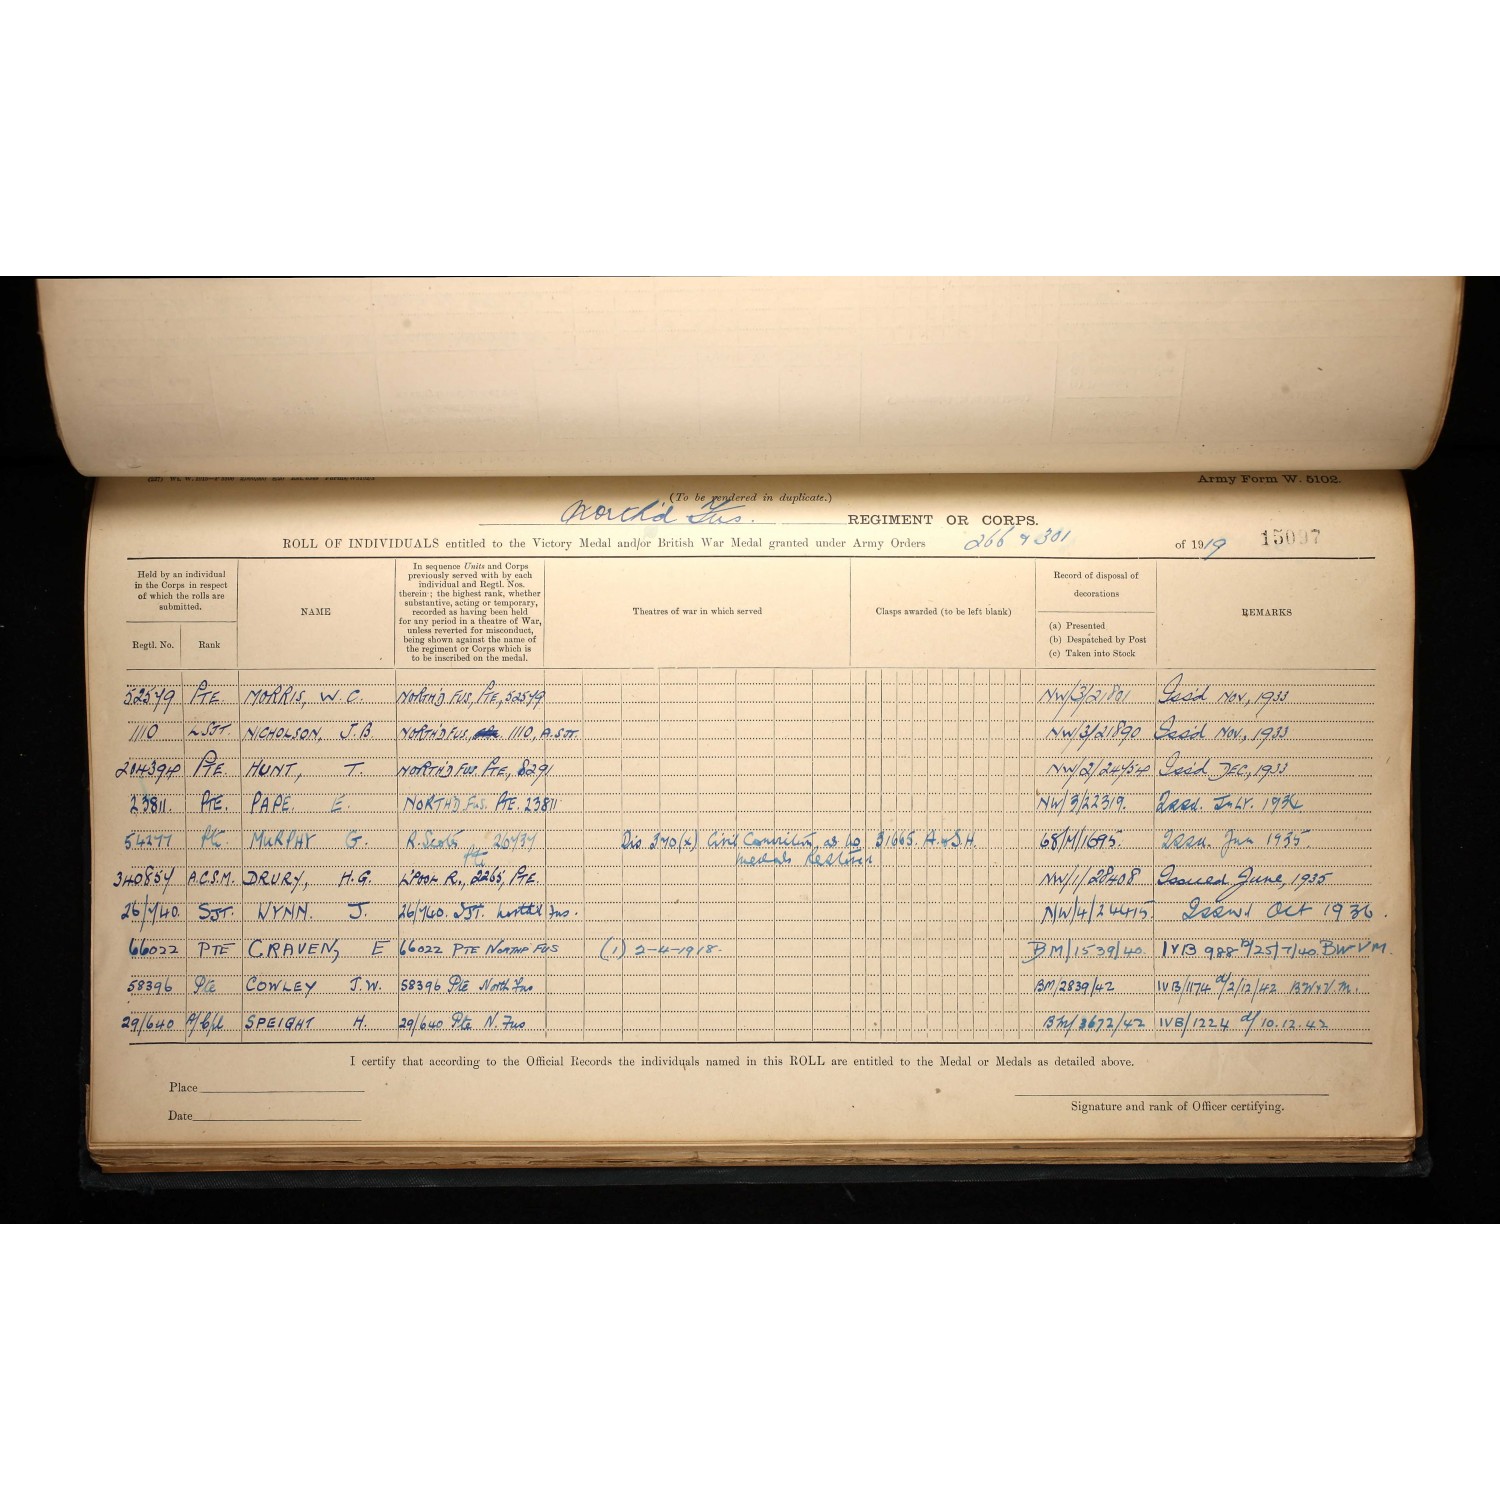 Army Form W. 5102.
(To be rendered in duplicate.)
North'd Fus. REGIMENT OR CORPS.
ROLL OF INDIVIDUALS entitled to the Victory Medal and/or British War Medal granted under Army Orders 266 & 301 of 1919 15097
Held by an individual in the Corps in respect of which the rolls are submitted.
Regtl. No. Rank
NAME
In sequence Units and Corps previously served with by each individual and Regtl. Nos. therein; the highest rank, whether substantive, acting or temporary, recorded as having been held for any period in a theatre of War, unless reverted for misconduct, being shown against the name of the regiment or Corps which is to be inscribed on the medal.
Theatres of war in which served
Clasps awarded (to be left blank)
Record of disposal of decorations
(a) Presented
(b) Despatched by Post
(c) Taken into Stock
REMARKS
52579 PTE MORRIS, W. C. NORTH'D FUS, PTE, 52579 NW/3/21801 Iss'd NOV, 1933
1110 L SJT. NICHOLSON, J.B. NORTH'D FUS, 1110, A. SJT. NW/3/21890 Iss'd NOV, 1933
204394 PTE. HUNT, T. NORTH'D FUS PTE, 8291 NW/2/24754 Iss'd DEC, 1933
23811. PTE. PAPE. E. NORTH'D FUS. PTE. 23811 NW/3/22319. Issd. JULY. 1934
54277 Pte. MURPHY G. R. Scots 26737 Pte Dis 370(x) Civil Conviction, as no medals Restored S/1665. A. & S.H. 68/M/1695. Issd. Jan 1935.
340857 A.C.S.M. DRURY, H.G. L'POOL R., 2265, PTE. NW/1/28408 Issued June, 1935
26/740. SJT. WYNN. J. 26/740. SJT. North'd Fus. NW/4/24415. Issued Oct 1936.
66022 PTE CRAVEN, E 66022 PTE NORTHD FUS (1) 2-4-1918. BM/1539/40. IVB 988 D/25/7/40. BWVM.
58396 Pte COWLEY J.W. 58396 Pte North Fus BM/2839/42 IVB/1174 d/2/12/42 BW&V.M.
29/640 A/Cpl SPEIGHT H. 29/640 Pte N. Fus BM/3672/42 IVB/1224 d/ 10.12.42
I certify that according to the Official Records the individuals named in this ROLL are entitled to the Medal or Medals as detailed above.
Place
Date
Signature and rank of Officer certifying.